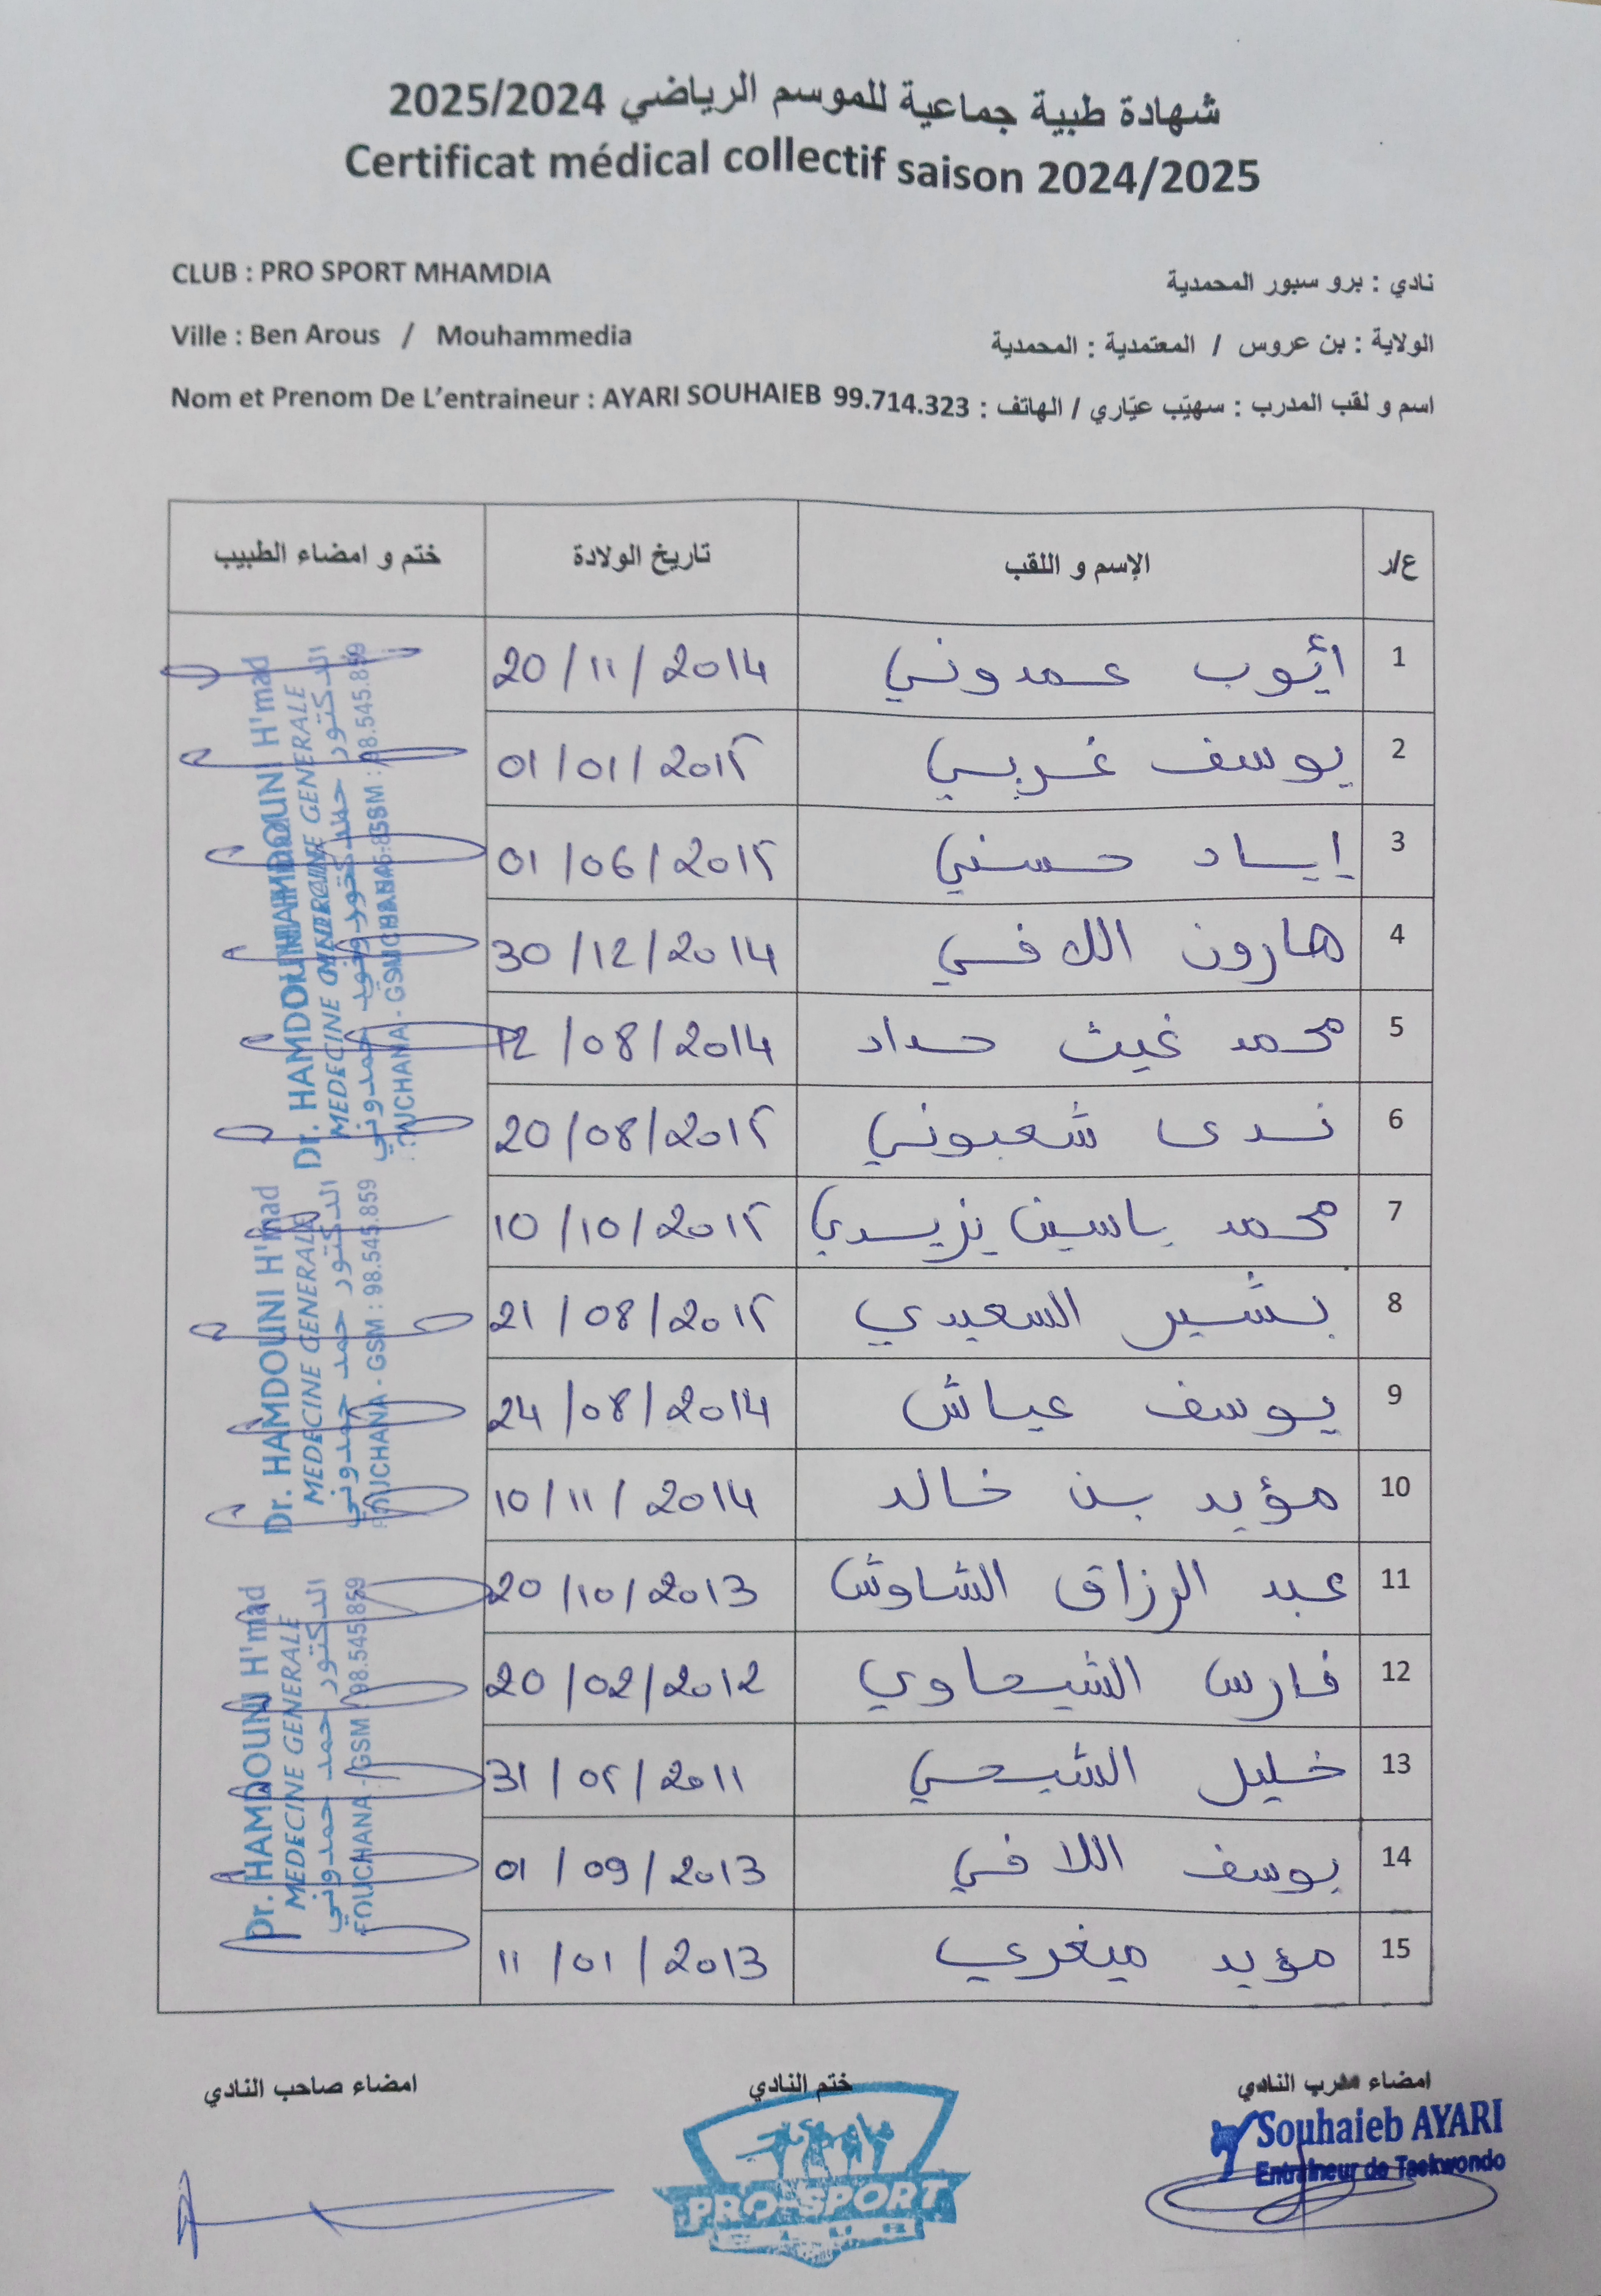 شهادة طبية جماعية للموسم الرياضي 2025/2024
Certificat médical collectif saison 2024/2025
CLUB : PRO SPORT MHAMDIA نادي : برو سبور المحمدية
Ville : Ben Arous / Mouhammedia الولاية : بن عروس / المعتمدية : المحمدية
Nom et Prenom De L’entraineur : AYARI SOUHAIEB 99.714.323 اسم و لقب المدرب : سهيّب عيّاري / الهاتف :
ع/ر الإسم و اللقب تاريخ الولادة ختم و امضاء الطبيب
1 أيّوب عمدوني 20/11/2014
2 يوسف غربي 01/01/2015
3 إياد حسني 01/06/2015
4 هارون اللافي 30/12/2014
5 محمد غيث حداد 12/08/2014
6 ندى شعبوني 20/08/2015
7 محمد ياسين يزيدي 10/10/2015
8 بشير السعيدي 21/08/2015
9 يوسف عياش 24/08/2014
10 مؤيد بن خالد 10/11/2014
11 عبد الرزاق الشاوش 20/10/2013
12 فارس الشيحاوي 20/02/2012
13 خليل الشيحي 31/05/2011
14 يوسف اللافي 01/09/2013
15 مؤيد ميغري 11/01/2013
Dr. HAMDOUNI H'mad
MEDECINE GENERALE
الدكتور حمد حمدوني
FOUCHANA - GSM : 98.545.859
Dr. HAMDOUNI H'mad
MEDECINE GENERALE
الدكتور حمد حمدوني
FOUCHANA - GSM : 98.545.859
Dr. HAMDOUNI H'mad
MEDECINE GENERALE
الدكتور حمد حمدوني
FOUCHANA - GSM : 98.545.859
امضاء مدرب النادي ختم النادي امضاء صاحب النادي
Souhaieb AYARI
Entraineur de Taekwondo
PRO-SPORT